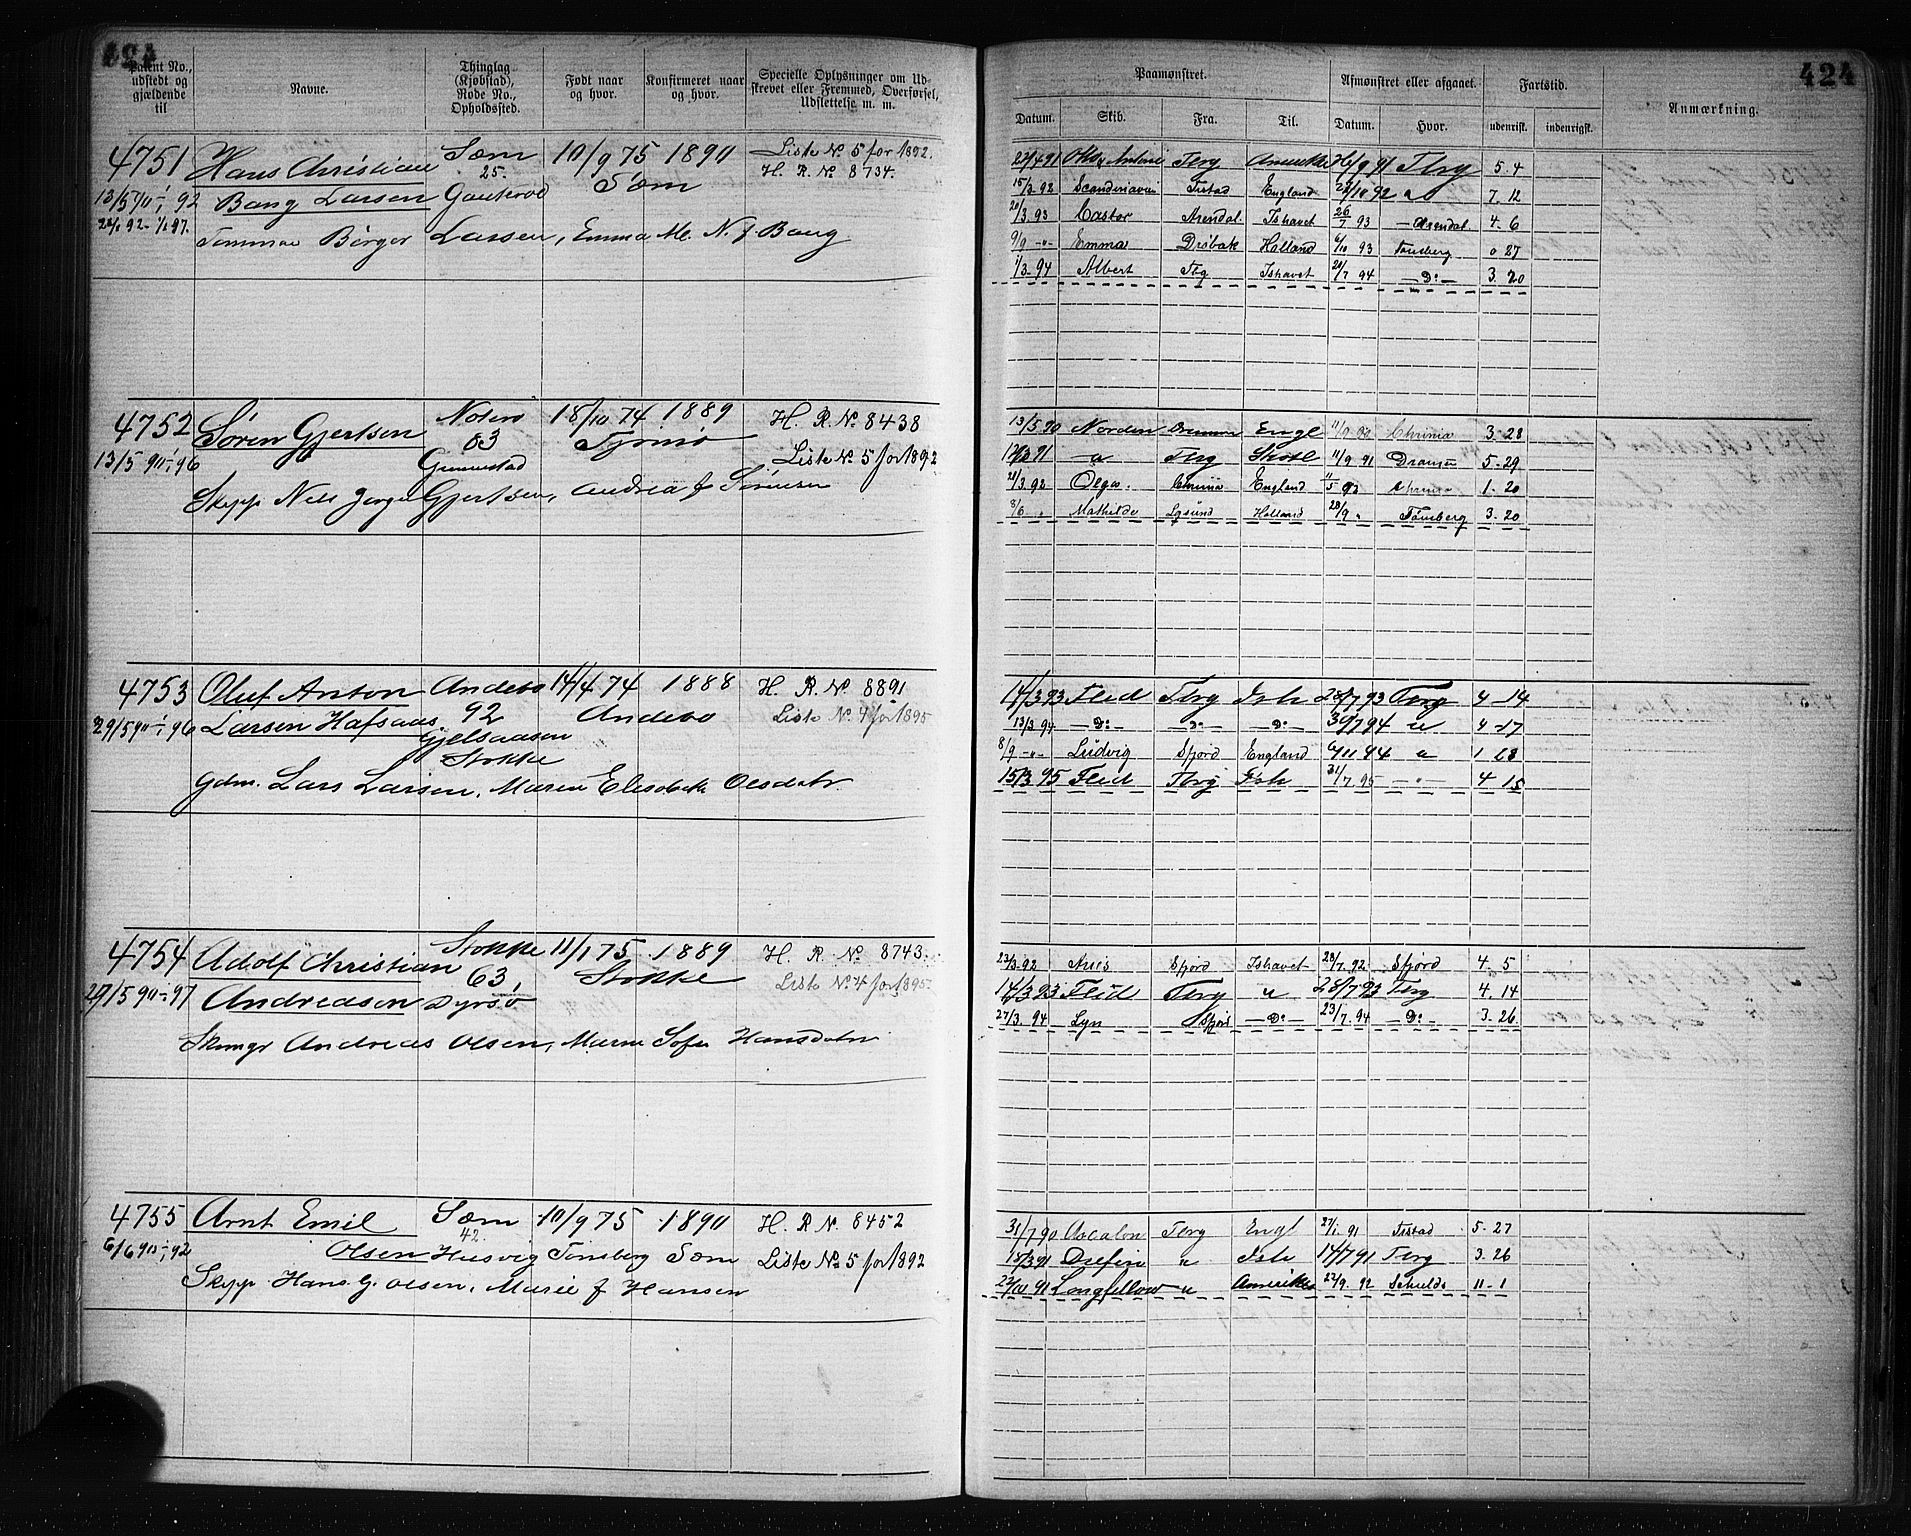 424
Patent No., udstedt og gjældende til
Navne.
Thinglag (Kjøbstad), Rode No., Opholdssted.
Født naar og hvor.
Konfirmeret naar og hvor.
Specielle Oplysninger om Udskrevet eller Fremmed, Overførsel, Udslettelse m. m.
4751 Hans Christian Sæm 10/9 75 1890 Liste No 5 for 1892.
25. Sæm H. R. No 8734.
13/5 90 - 1/1 92 Bang Larsen
Tømmm Børger Larsen, Emma M. N. f. Bang
4752 Søren Gjertsen Noterø 18/10 74 1889 H. R. No 8438
63 Tjømø
13/5 90 - 1/1 96 Liste No 5 for 1892
Skipp. Nils Jørgen Gjertsen, Andrea f. Sørensen
4753 Oluf Anton Andebo 14/4 74 1888 H. R. No 8891
29/5 90 - 1/1 96 Larsen Hafsaas 92 Andebo Liste No 4 for 1895
Gjelsaasen
Stokke
Gdm. Lars Larsen, Maren Elisabeth Olsdatr
4754 Adolf Christian Stokke 11/1 75 1889 H. R. No 8743.
63, Stokke Liste No 4 for 1895
27/5 90 - 1/1 97 Andreasen Dyrsø
Andreas Olsen, Maren Sofie Hansdatr
4755 Arnt Emil Sæm 10/9 75 1890 H. R. N. 8452
42.
6/6 90 - 1/1 92 Olsen Husvig Tønsberg Sæm Liste No 5 for 1892
Skipp. Hans G. Olsen, Marie f. Hansen
424
Paamønstret.
Afmønstret eller afgaaet.
Fartstid.
Anmærkning.
Datum. Skib. Fra. Til. Datum. Hvor. udenrigsk. indenrigsk.
22/4 91 Tbrg Amerika 91 Tbrg 5 4
15/3 92 Scandinavien Frstad England 10 92 7. 12
20/3 93 Castor Arendal Ishavet 26/7 93 Arendal 4. 6
9/9 -"- Emma Drøbak Holland 6/10 93 Tønsberg 0 27
1/3 94 Albert Tbg Ishavet 20/7 94 - Do - 3. 20
13/5 90 Norden Drammen Engl 11/9 90 Chrania 3. 28
91 " Tbrg 11/9 91 Dramen 5. 29
21/3 92 Olga. England Chrania 1. 20
8/6 " Mathilde Lysund Holland 28/9 " Tønsberg 3. 20
14/3 93 Flid Tbrg Ish 28/7 93 Tbrg 4 14
13/3 94 - Do - - Do - - Do - 30/7 94 " 4 17
8/9 -"- Ludvig Sfjord England 6/11 94 " 1 28
15/3 95 Flid Tbrg Ish 31/7 95 -"- 4 15
23/3 92 Sfjord Ishavet 28/7 92 Sfjord 4. 5
14/3 93 Flid Tbrg " 28/7 93 Tbrg 4. 14
27/3 94 Lyn Sfjord - Do - 23/7 94 - Do - 3. 26
31/7 90 Ascalon Tbrg Engl 27/1 91 Frstad 5. 27
18/3 91 Delfin " Ish 14/7 91 Tbrg 3. 26
22/10 91 Longfellow " Amerika 22/9 92 11. 1